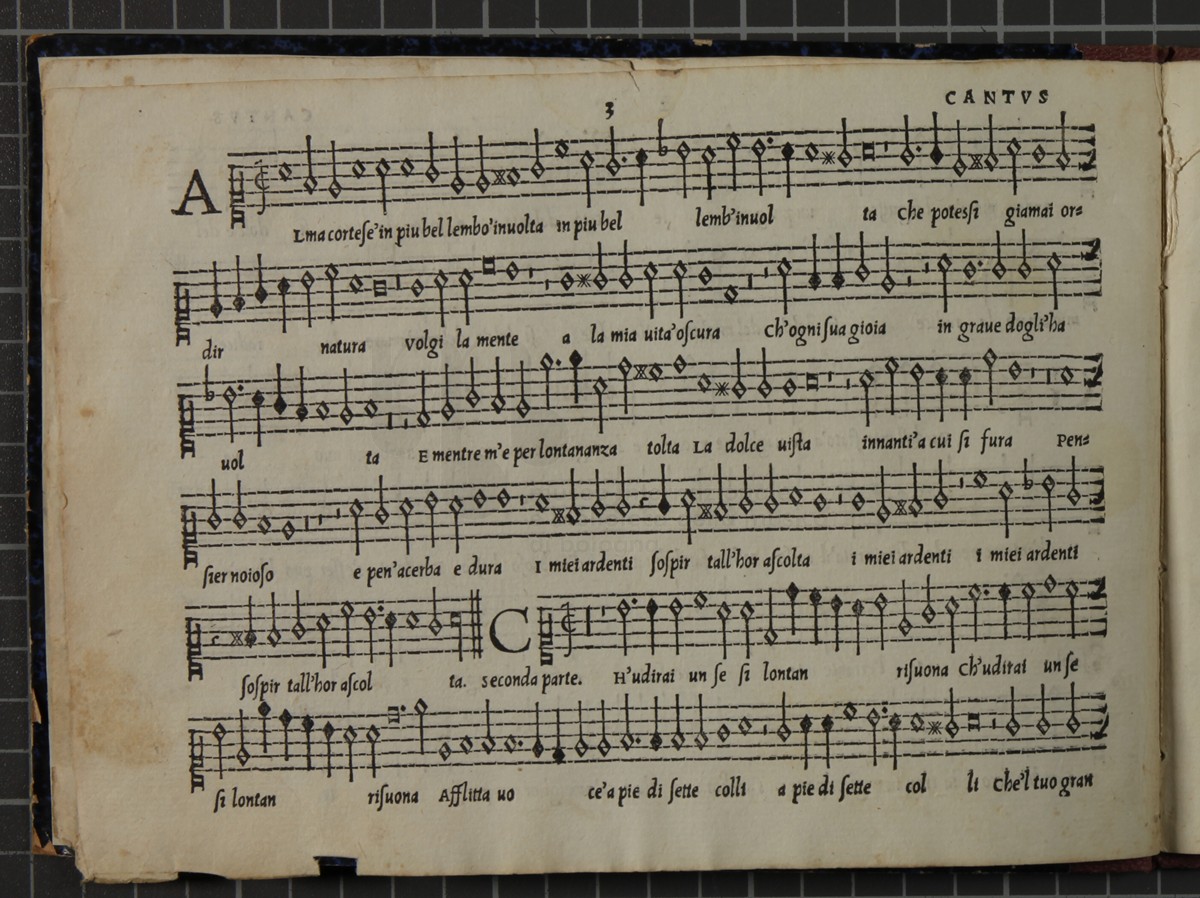 3
CANTVS
A Lma cortese'in piu bel lembo'inuolta in piu bel lemb'inuol ta Che potessi giamai or=
dir natura volgi la mente a la mia uita'oscura Ch'ogni sua gioia in graue dogli'ha
uol ta E mentre m'e per lontananza tolta La dolce uista innanti'a cui si fura Pen=
sier noioso e pen'acerba e dura I miei ardenti sospir tall'hor ascolta i miei ardenti i miei ardenti
sospir tall'hor ascol ta. seconda parte. C H'udirai un se si lontan risuona Ch'udirai un se
si lontan risuona Afflitta uo ce'a pie di sette colli a pie di sette col li Che'l tuo gran